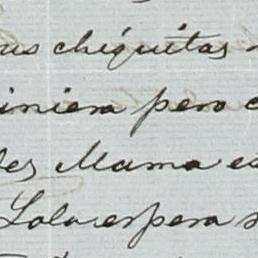 us chiquitas
iniera pero
es Mama es
Lola espera s